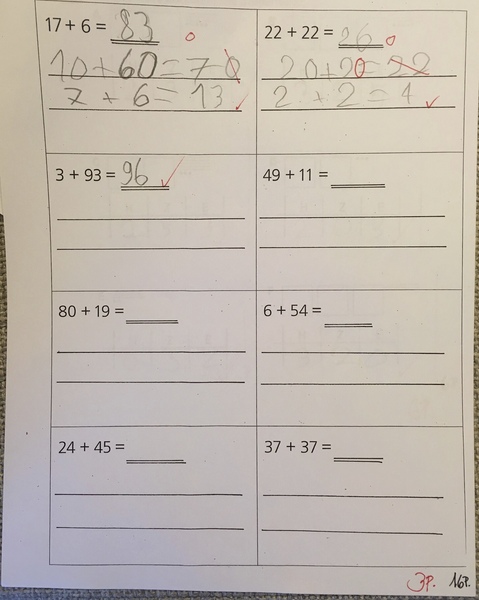 17 + 6 = 83
10+60=70
7 + 6 = 13 ✓
22 + 22 = 26
20+20=22
2 + 2 = 4 ✓
3 + 93 = 96 ✓
49 + 11 =
80 + 19 =
6 + 54 =
24 + 45 =
37 + 37 =
3P. 16P.